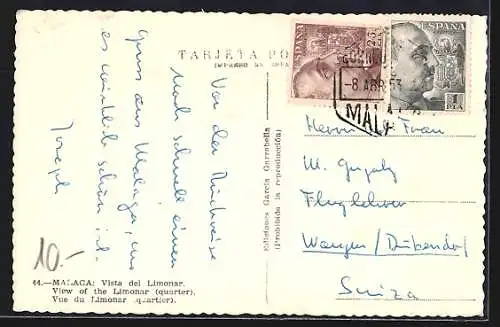 TARJETA PO
ESPAÑA
ESPAÑA
25
1
PTA
-8 ABR 53
MALA
Vor der Rückreise
noch schnell einen
Gruss aus Malaga, wo
es wirklich schön ist.
Joseph
Herrn & Frau
M.
Fluglehrer
Wangen / Dübendorf
Suiza
Ediciones García Garrabella
(Prohibida la reproducción)
10.-
44.—MALAGA: Vista del Limonar.
View of the Limonar (quarter).
Vue du Limonar (quartier).